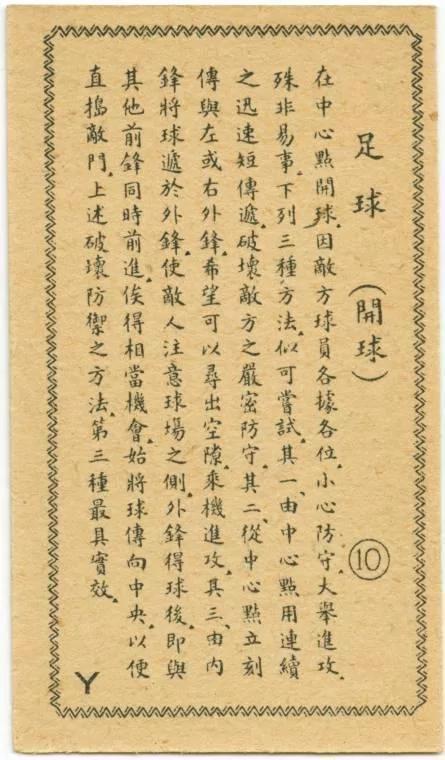 足球(開球)
⑩
在中心點開球、因敵方球員各據各位、小心防守、大舉進攻、
殊非易事、下列三種方法、似可嘗試、其一、由中心點用連續
之迅速短傳遞、破壞敵方之嚴密防守、其二、從中心點立刻
傳與左或右外鋒、希望可以尋出空隙、乘機進攻、其三、由內
鋒將球遞於外鋒、使敵人注意球場之側、外鋒得球後、即與
其他前鋒同時前進、俟得相當機會、始將球傳向中央、以便
直搗敵門、上述破壞防禦之方法、第三種最具實效、
Y